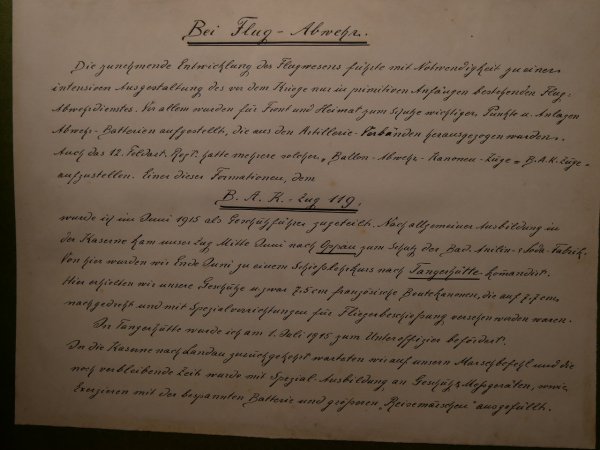 Bei Flug-Abwehr.
Die zunehmende Entwicklung des Flugwesens führte mit Notwendigkeit zu einer
intensiven Ausgestaltung des vor dem Kriege nur in primitiven Anfängen bestehenden Flug-
Abwehrdienstes. Vor allem wurden für Front und Heimat zum Schutze wichtiger Punkte u. Anlagen
Abwehr-Batterien aufgestellt, die aus den Artillerie-Verbänden herausgezogen wurden.
Auch das 12. Feldart. Regt. hatte mehrere solcher „Ballon-Abwehr-Kanonen-Züge = B.A.K.-Züge"
aufzustellen. Einer dieser Formationen, dem
B. A. K.-Zug 119,
wurde ich im Juni 1915 als Geschützführer zugeteilt. Nach allgemeiner Ausbildung in
der Kaserne kam unser Zug Mitte Juni nach Oppau zum Schutz der Bad. Anilin- & Soda-Fabrik.
Von hier wurden wir Ende Juni zu einem Schießlehrkurs nach Tangerhütte komandiert.
Hier erhielten wir unsere Geschütze u. zwar 7,5 cm französische Beutekanonen, die auf 7,7 cm
nachgedreht und mit Spezialvorrichtungen für Fliegerbeschießung versehen worden waren.
In Tangerhütte wurde ich am 1. Juli 1915 zum Unteroffizier befördert.
In die Kaserne nach Landau zurückgekehrt warteten wir auf unsern Marschbefehl und die
noch verbleibende Zeit wurde mit Spezial-Ausbildung an Geschütz, Meßgeräten, sowie
Exerzieren mit der bespannten Batterie und größeren „Reisemärschen" ausgefüllt.